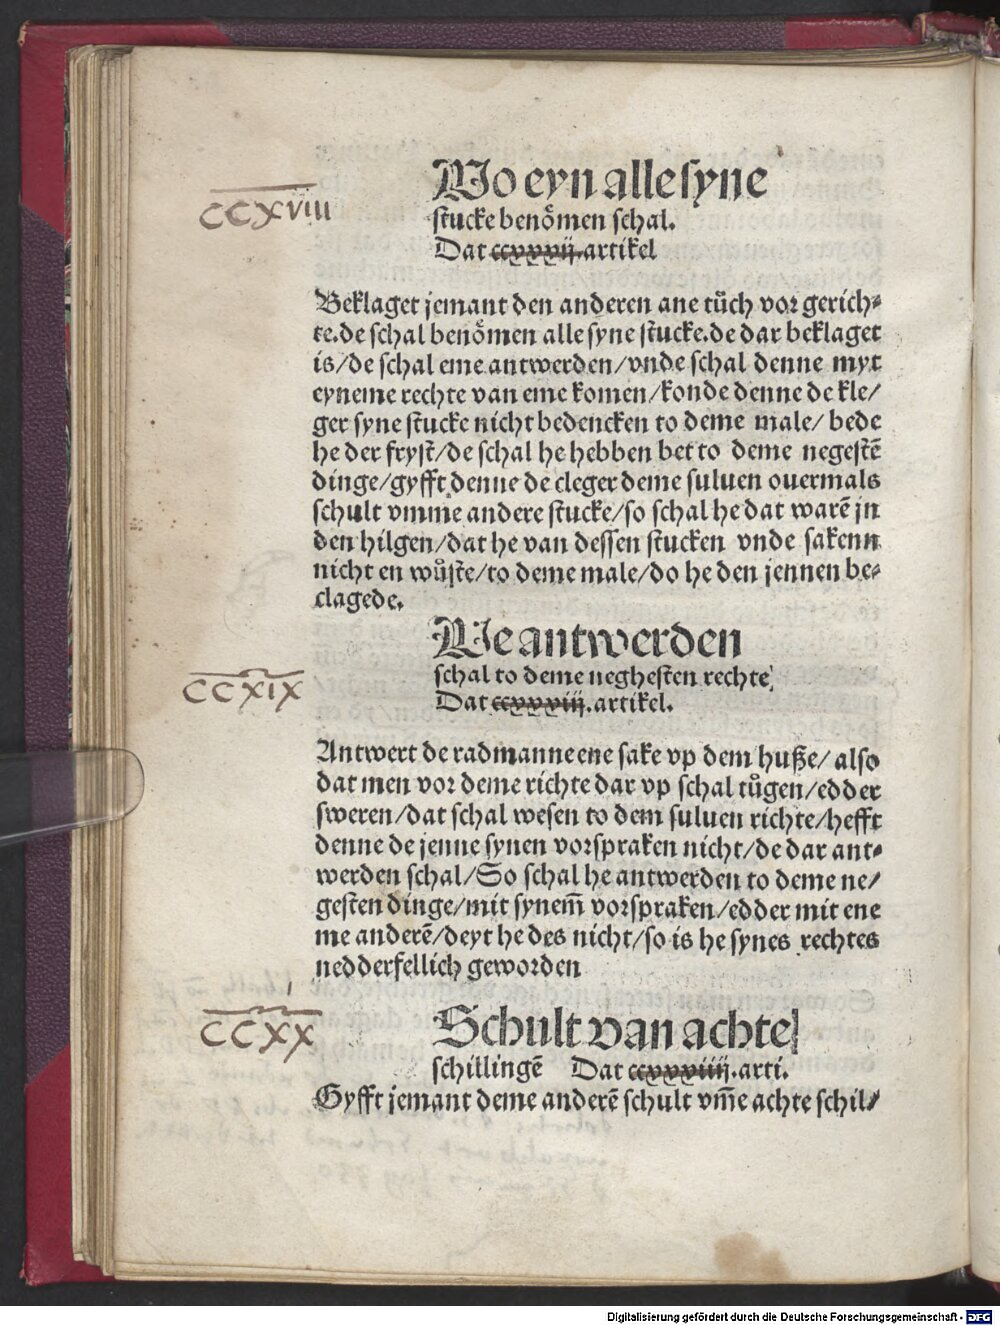 Wo eyn alle syne
CCXVIII
stucke benoͤmen schal.
Dat ccxxxij. artikel
Beklaget jemant den anderen ane tuͤch vor gerich⸗
te. de schal benoͤmen alle syne stucke. de dar beklaget
is/de schal eme antwerden/vnde schal denne myt
eyneme rechte van eme komen/konde denne de kle/
ger syne stucke nicht bedencken to deme male/ bede
he der fryst/de schal he hebben bet to deme negestē
dinge/gyfft denne de cleger deme suluen ouermals
schult vmme andere stucke/so schal he dat warē jn
den hilgen/dat he van dessen stucken vnde sakenn
nicht en wuͤste/to deme male/do he den jennen be⸗
clagede.
We antwerden
schal to deme neghesten rechte
CCXIX
Dat ccxxxiij. artikel.
Antwert de radmanne ene sake vp dem huße/ also
dat men vor deme richte dar vp schal tuͤgen/edder
sweren/dat schal wesen to dem suluen richte/hefft
denne de jenne synen vorspraken nicht/de dar ant⸗
werden schal/So schal he antwerden to deme ne/
gesten dinge/mit synem̄ vorspraken/edder mit ene
me anderē/deyt he des nicht/so is he synes rechtes
nedderfellich geworden
CCXX
Schult van achte
schillingē Dat ccxxxiiij. arti.
Gyfft jemant deme anderē schult vm̄e achte schil/
Digitalisierung gefördert durch die Deutsche Forschungsgemeinschaft - DFG